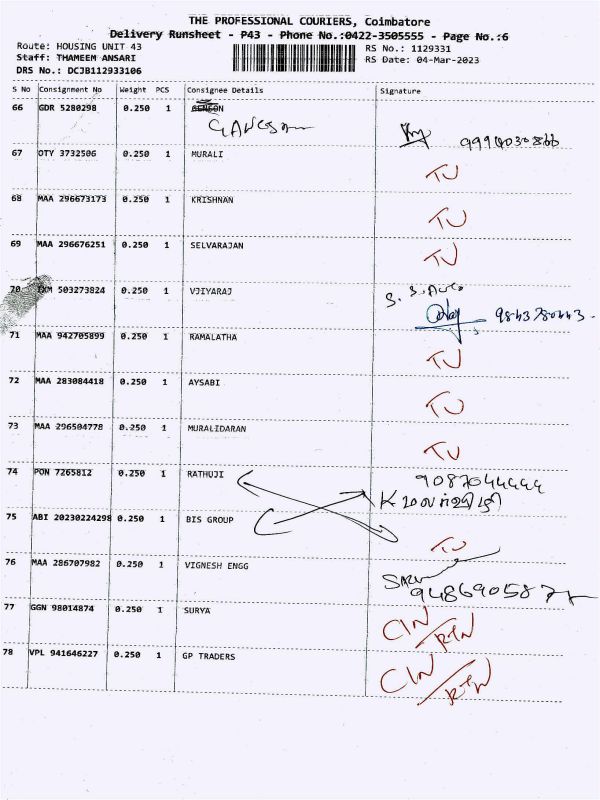 THE PROFESSIONAL COURIERS, Coimbatore
Delivery Runsheet - P43 - Phone No.:0422-3505555 - Page No.:6
Route: HOUSING UNIT 43 RS No.: 1129331
Staff: THAMEEM ANSARI RS Date: 04-Mar-2023
DRS No.: DCJB112933106
S No Consignment No Weight PCS Consignee Details Signature
66 GDR 5280298 0.250 1
67 OTY 3732506 0.250 1 MURALI TU
68 MAA 296673173 0.250 1 KRISHNAN TU
69 MAA 296676251 0.250 1 SELVARAJAN TU
70 IXM 503273824 0.250 1 VJIYARAJ
71 MAA 942705899 0.250 1 RAMALATHA TU
72 MAA 283084418 0.250 1 AYSABI TU
73 MAA 296504778 0.250 1 MURALIDARAN TU
74 PON 7265812 0.250 1 RATHUJI 9087044444
75 ABI 20230224298 0.250 1 BIS GROUP TU
76 MAA 286707982 0.250 1 VIGNESH ENGG
77 GGN 98014874 0.250 1 SURYA CIN/RTN
78 VPL 941646227 0.250 1 GP TRADERS CIN/RTN